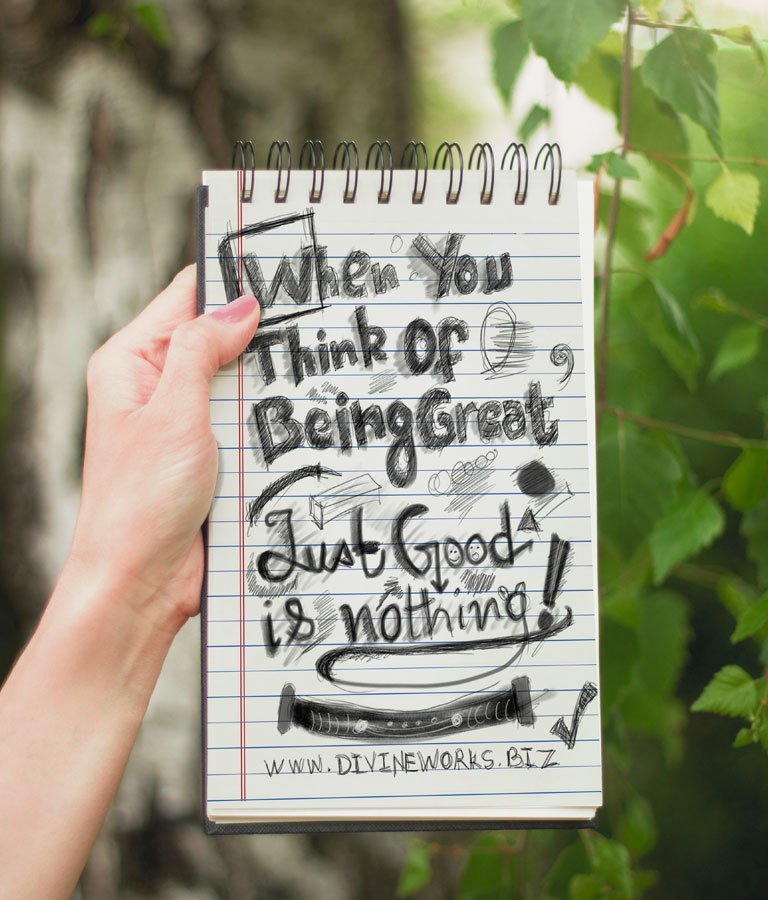 When You
Think Of
Being Great,
Just Good
is nothing!
WWW.DIVINEWORKS.BIZ